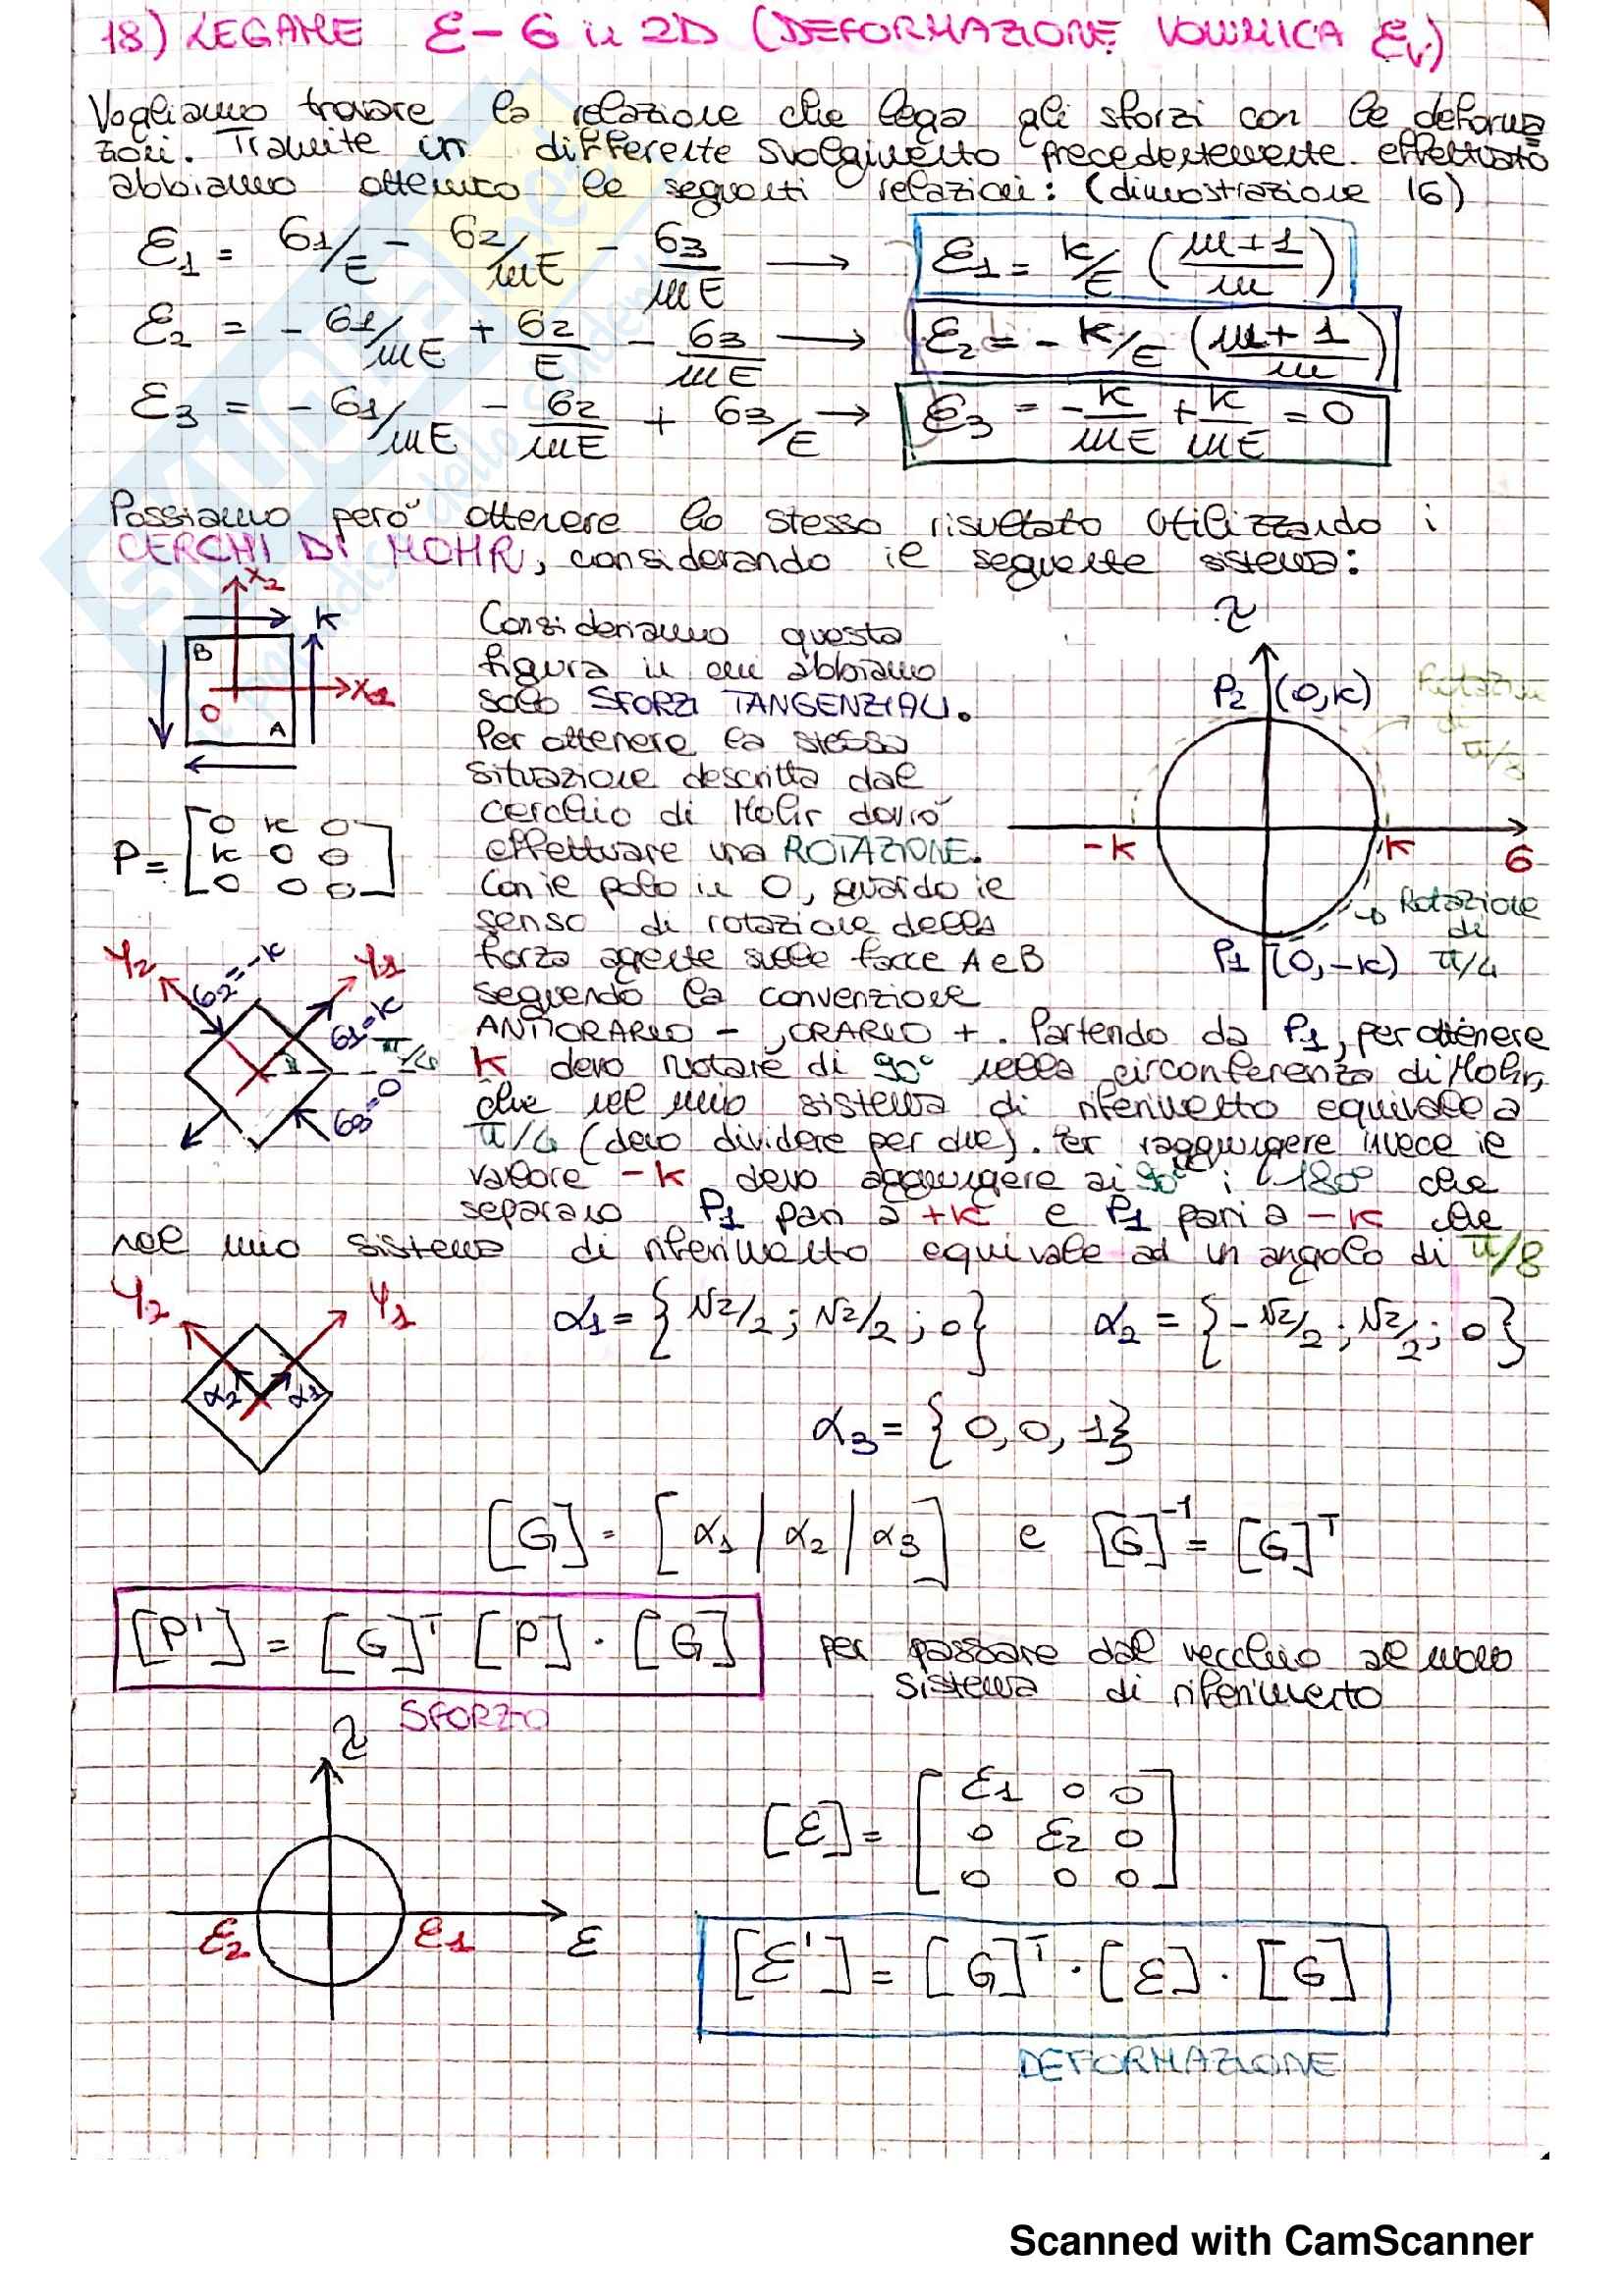 18) LEGAME ε-σ in 2D (DEFORMAZIONE VOLUMICA εv)
Vogliamo trovare la relazione che lega gli sforzi con le deforma
zioni. Tramite un differente svolgimento precedentemente effettuato
abbiamo ottenuto le seguenti relazioni: (dimostrazione 16)
ε1 = σ1/E - σ2/mE - σ3/mE → ε1 = k/E (m+1/m)
ε2 = -σ1/mE + σ2/E - σ3/mE → ε2 = -k/E (m+1/m)
ε3 = -σ1/mE - σ2/mE + σ3/E → ε3 = -k/mE + k/mE = 0
Possiamo però ottenere lo stesso risultato utilizzando i
CERCHI DI MOHR, considerando il seguente sistema:
x2
k
B
x1
O
A
P = [0 k 0
k 0 0
0 0 0]
Consideriamo questa
figura in cui abbiamo
solo SFORZI TANGENZIALI.
Per ottenere la stessa
situazione descritta dal
cerchio di Mohr dovrò
effettuare una ROTAZIONE.
Con il polo in O, guardo il
senso di rotazione della
forza agente sulle facce A e B
seguendo la convenzione
ANTIORARIO - , ORARIO + . Partendo da P1, per ottenere
k devo ruotare di 90° nella circonferenza di Mohr,
che nel mio sistema di riferimento equivale a
π/4 (devo dividere per due). Per raggiungere invece il
valore -k devo aggiungere ai 90° i 180° che
separano P1 pari a +k e P1 pari a -k che
nel mio sistema di riferimento equivale ad un angolo di π/8
τ
P2 (0,k)
Rotazione
di
π/8
-k
k
σ
Rotazione
di
π/4
P1 (0,-k)
Y2
σ2=-k
Y1
σ1=k
π/4
σ3=0
Y2
Y1
α2
α1
α1 = {√2/2 ; √2/2 ; 0} α2 = {-√2/2 ; √2/2 ; 0}
α3 = {0, 0, 1}
[G] = [α1 | α2 | α3] e [G]⁻¹ = [G]ᵀ
[P'] = [G]ᵀ [P] · [G] per passare dal vecchio al nuovo
sistema di riferimento
SFORZO
τ
ε2
ε1
ε
[ε] = [ε1 0 0
0 ε2 0
0 0 0]
[ε'] = [G]ᵀ · [ε] · [G]
DEFORMAZIONE
Scanned with CamScanner